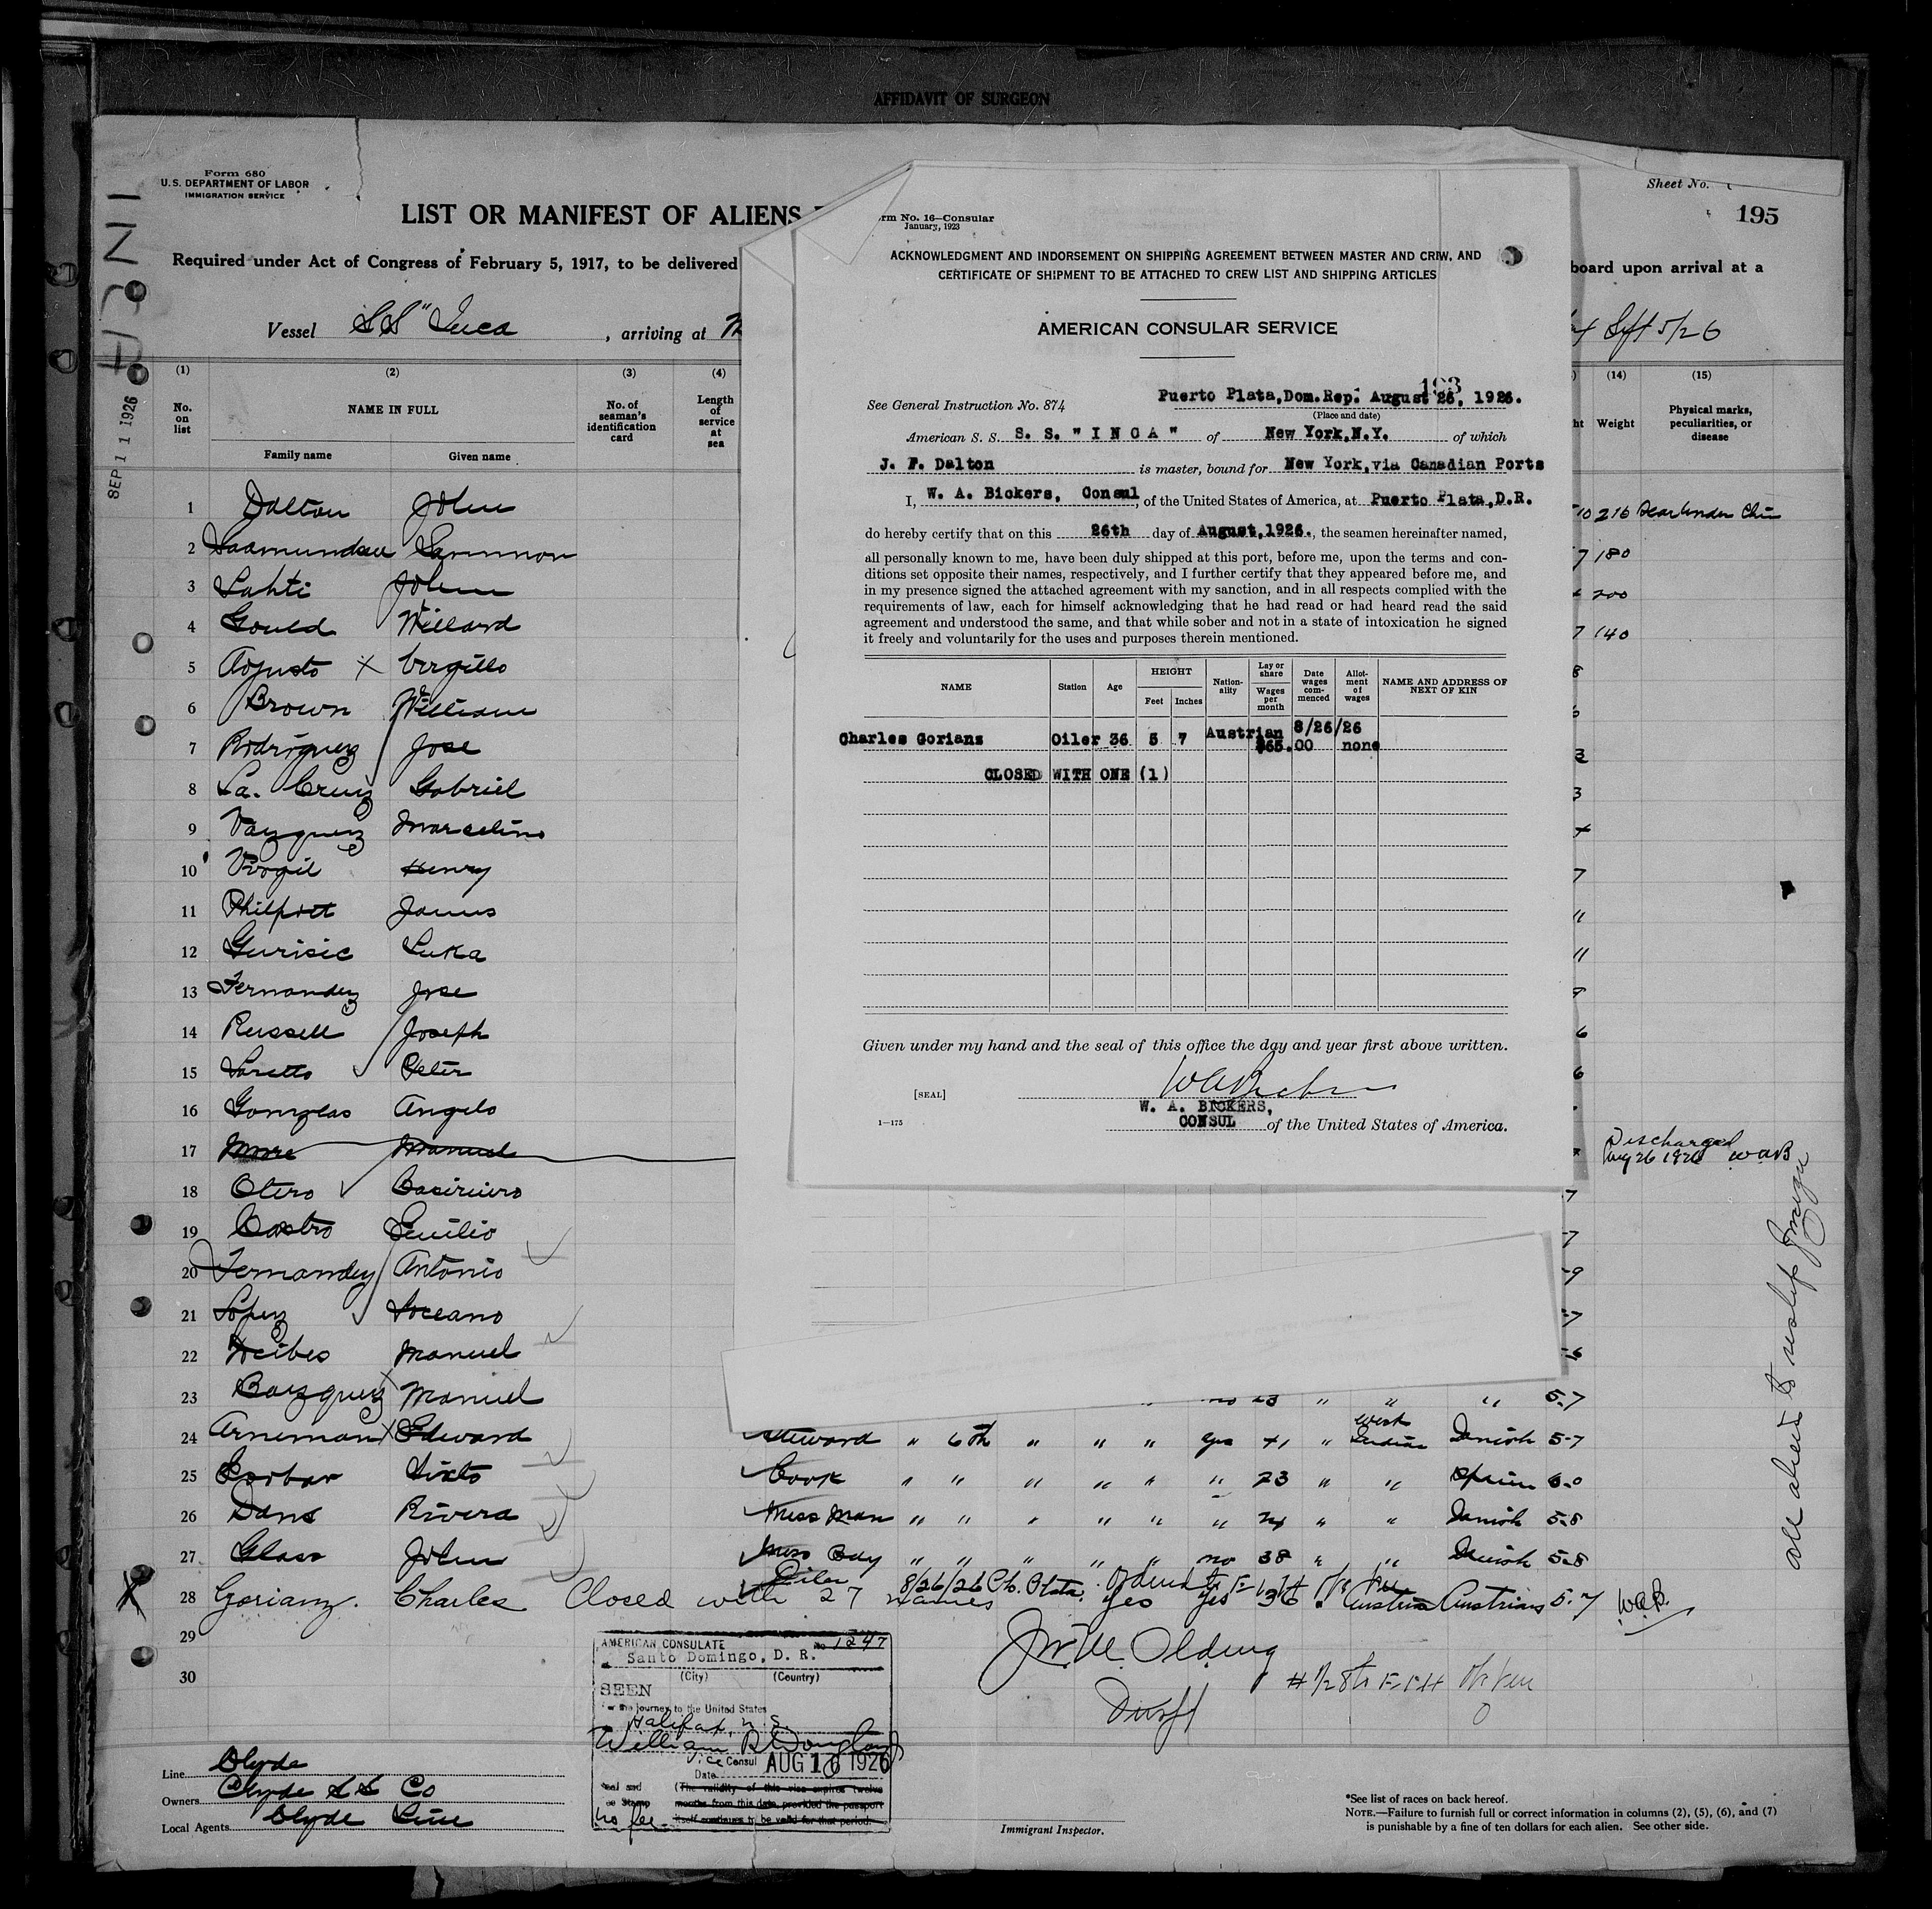 AFFIDAVIT OF SURGEON
Form 680
U.S. DEPARTMENT OF LABOR
IMMIGRATION SERVICE
Sheet No.
195
LIST OR MANIFEST OF ALIENS
Required under Act of Congress of February 5, 1917, to be delivered
board upon arrival at a
Vessel SS "Inca , arriving at
Sept 5/26
SEP 11 1926
(1) (2) (3) (4)
No. on list
NAME IN FULL
Family name Given name
No. of seaman's identification card
Length of service at sea
(14) (15)
Weight
Physical marks, peculiarities, or disease
1 Dalton John
2 Saamundsen
3 Lahti John
4 Gould Willard
5 Agusto X Virgillo
6 Brown William
7 Rodriguez Jose
8 La. Cruz Gabriel
9 Vazquez Marcelino
10 Virgil Henry
11 Philpott James
12 Gurisic Luka
13 Fernandez Jose
14 Russell Joseph
15 Loretto Peter
16 Angelo
17 More Manuel
18 Otero Casimiro
19 Castro Emilio
20 Fernandez Antonio
21 Lopez
22 Manuel
23 Bazquez Manuel
24 Arneman X Edward
25 Sixto
26 Dans Rivera
27 Glass John
28 Gorianz. Charles Closed with 27 names
29
30
10 216 Scar Under Chin
7 180
200
7 140
Discharged
Aug 26 1926 WAB
all aliens to reship foreign
no 23 " " " 5-7
Steward " 6th " " " yes 41 " West Indian Danish 5-7
Cook " " " " " " 23 " " Spain 6-0
Mess Man " " " " " " 24 " " Danish 5-8
Mess Boy " " " " " no 38 " " Danish 5-8
Oiler 8/26/26 Pto. Plata. yes yes 36 Austria Austrian 5-7 W.A.B.
AMERICAN CONSULATE No 1247
Santo Domingo, D. R.
(City) (Country)
SEEN
For the journey to the United States
Halifax, N.S.
William B Douglass
Vice Consul AUG 16 1926
Date
Seal and
Fee Stamp
(The validity of this visa expires twelve
months from this date, provided the passport
itself continues to be valid for that period.
No fee.
Line Clyde
Owners Clyde SS Co
Local Agents Clyde Line
Immigrant Inspector.
*See list of races on back hereof.
NOTE.—Failure to furnish full or correct information in columns (2), (5), (6), and (7)
is punishable by a fine of ten dollars for each alien. See other side.
rm No. 16—Consular
January, 1923
ACKNOWLEDGMENT AND INDORSEMENT ON SHIPPING AGREEMENT BETWEEN MASTER AND CREW, AND
CERTIFICATE OF SHIPMENT TO BE ATTACHED TO CREW LIST AND SHIPPING ARTICLES
AMERICAN CONSULAR SERVICE
193
See General Instruction No. 874
Puerto Plata,Dom.Rep. August 26, 1926.
(Place and date)
American S. S. S. S. "I N C A" of New York,N.Y. of which
J. F. Dalton is master, bound for New York,via Canadian Ports
I, W. A. Bickers, Consul, of the United States of America, at Puerto Plata,D.R.
do hereby certify that on this 26th day of August,1926., the seamen hereinafter named,
all personally known to me, have been duly shipped at this port, before me, upon the terms and con-
ditions set opposite their names, respectively, and I further certify that they appeared before me, and
in my presence signed the attached agreement with my sanction, and in all respects complied with the
requirements of law, each for himself acknowledging that he had read or had heard read the said
agreement and understood the same, and that while sober and not in a state of intoxication he signed
it freely and voluntarily for the uses and purposes therein mentioned.
NAME Station Age HEIGHT Feet Inches Nation-ality Lay or share Wages per month Date wages com-menced Allot-ment of wages NAME AND ADDRESS OF NEXT OF KIN
Charles Gorians Oiler 36 5 7 Austrian $65.00 8/26/26 none
CLOSED WITH ONE (1)
Given under my hand and the seal of this office the day and year first above written.
[SEAL]
W. A. BICKERS,
CONSUL of the United States of America.
1—175